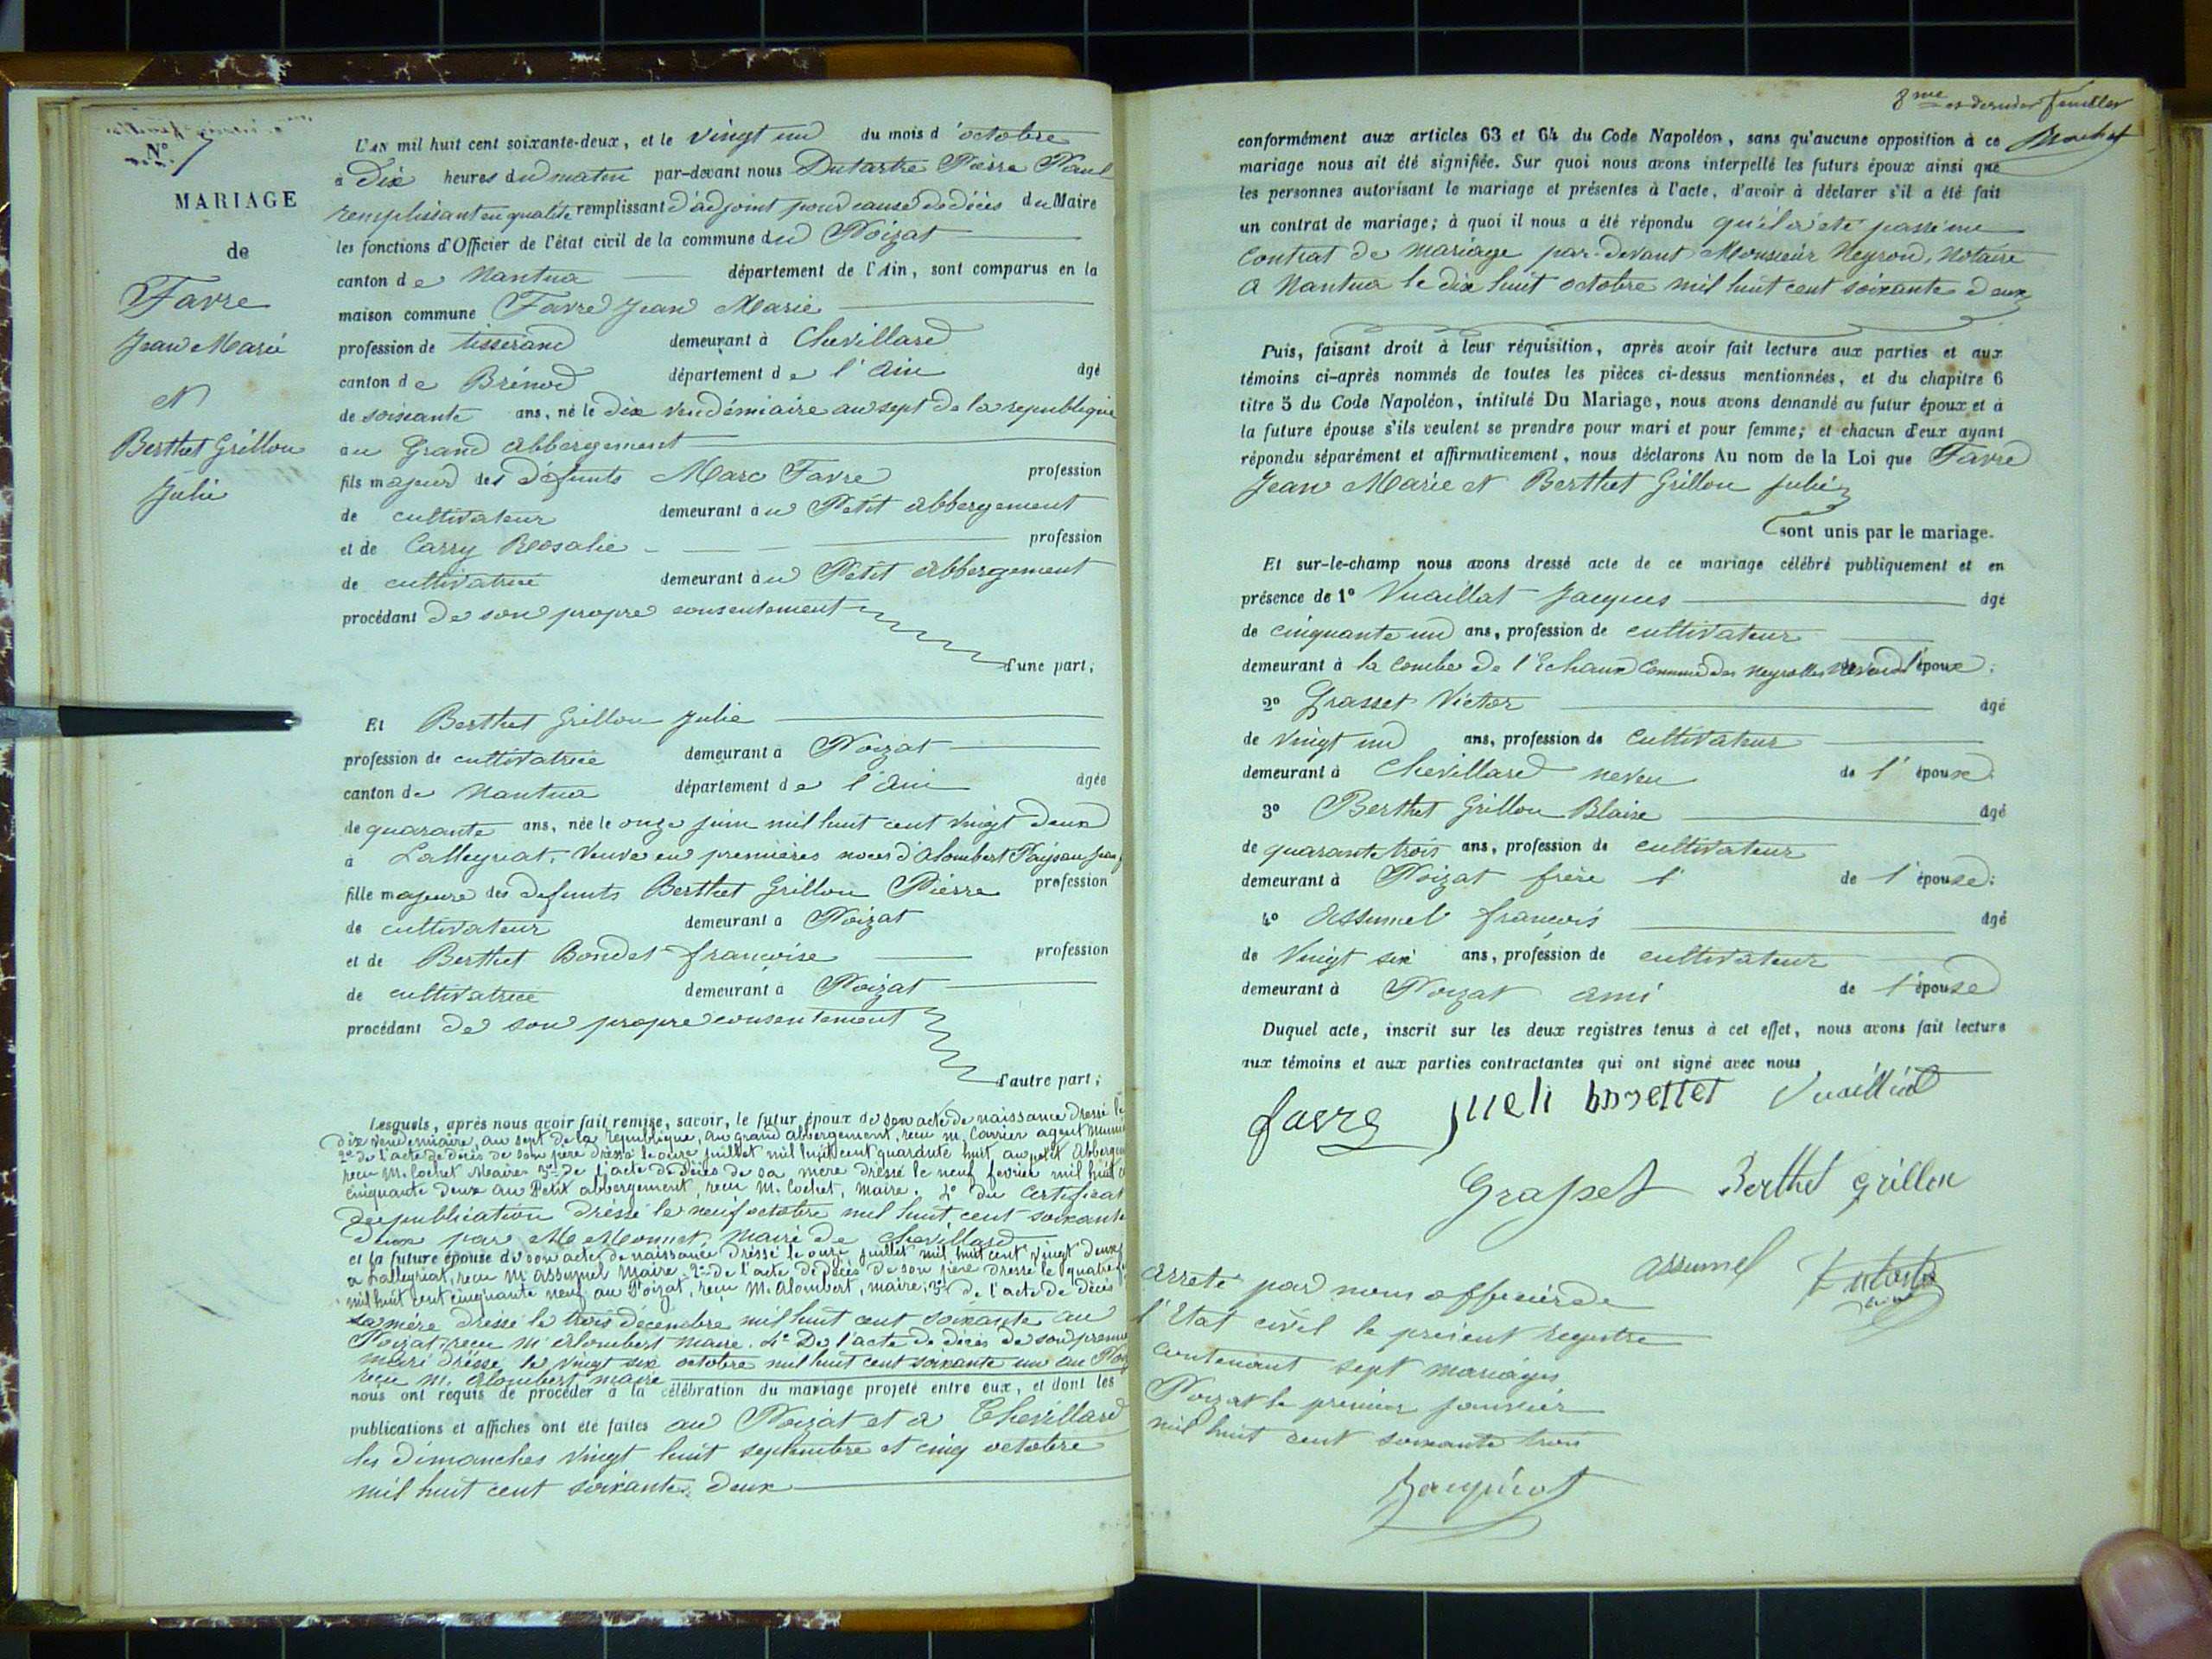 N° 7
MARIAGE
de
Favre
Jean Marie
et
Berthet Grillon
Julie
L'AN mil huit cent soixante-deux, et le vingt un du mois d'octobre
à dix heures du matin par-devant nous Dutartre Pierre Paul
remplissant en qualité remplissant d'adjoint pour cause de décès du Maire
les fonctions d'Officier de l'état civil de la commune du Poizat
canton de Nantua département de l'Ain, sont comparus en la
maison commune Favre Jean Marie
profession de tisserand demeurant à Chevillard
canton de Brénod département de l'Ain âgé
de soixante ans, né le dix vendémiaire an sept de la republique
au Grand abbergement
fils majeur des défunts Marc Favre profession
de cultivateur demeurant au Petit abbergement
et de Carry Rosalie profession
de cultivatrice demeurant au Petit abbergement
procédant de son propre consentement
d'une part;
Et Berthet Grillon Julie
profession de cultivatrice demeurant à Poizat
canton de Nantua département de l'Ain âgée
de quarante ans, née le onze juin mil huit cent vingt deux
à Lalleyriat, Veuve en premières noces d'Alombert
fille majeure des defunts Berthet Grillon Pierre profession
de cultivateur demeurant à Poizat
et de Berthet Bondet françoise profession
de cultivatrice demeurant à Poizat
procédant de son propre consentement
d'autre part;
Lesquels, après nous avoir fait remise, savoir, le futur époux de son acte de naissance dressé le
dix vendemiaire, an sept de la République, au grand abbergement, reçu m. Carrier agent
2° de l'acte de décès de son père dressé le onze juillet mil huit cent quarante huit au petit
reçu M. Cochet Maire 3° de l'acte de décès de sa mère dressé le neuf fevrier mil huit
cinquante deux au Petit abbergement, reçu M. Cochet, maire. 4° du Certificat
de publication dressé le neuf octobre mil huit cent soixante
deux par Me Monnet, maire de Chevillard
et la future épouse de son acte de naissance dressé le onze juillet mil huit cent vingt deux
a Lalleyriat, reçu M. Assumel Maire. 2° de l'acte de décès de son père dressé le quatre
mil huit cent cinquante neuf au Poizat, reçu M. Alombert, maire; 3° de l'acte de décès
sa mère dressé le trois décembre mil huit cent soixante au
Poizat, reçu M. Alombert maire. 4° De l'acte de décès de son
mari dressé le vingt six octobre mil huit cent soixante un au
reçu M. Alombert maire
nous ont requis de procéder à la célébration du mariage projeté entre eux, et dont les
publications et affiches ont été faites au Poizat et a Chevillard
les dimanches vingt huit septembre et cinq octobre
mil huit cent soixante deux
8me et dernier feuillet
conformément aux articles 63 et 64 du Code Napoléon, sans qu'aucune opposition à ce
mariage nous ait été signifiée. Sur quoi nous avons interpellé les futurs époux ainsi que
les personnes autorisant le mariage et présentes à l'acte, d'avoir à déclarer s'il a été fait
un contrat de mariage; à quoi il nous a été répondu qu'il a été passé un
Contrat de mariage par-devant Monsieur Neyrod, Notaire
a Nantua le dix huit octobre mil huit cent soixante deux
Puis, faisant droit à leur réquisition, après avoir fait lecture aux parties et aux
témoins ci-après nommés de toutes les pièces ci-dessus mentionnées, et du chapitre 6
titre 5 du Code Napoléon, intitulé Du Mariage, nous avons demandé au futur époux et à
la future épouse s'ils veulent se prendre pour mari et pour femme; et chacun d'eux ayant
répondu séparément et affirmativement, nous déclarons Au nom de la Loi que Favre
Jean Marie et Berthet Grillon Julie
sont unis par le mariage.
Et sur-le-champ nous avons dressé acte de ce mariage célébré publiquement et en
présence de 1° Vuaillat Jacques âgé
de cinquante un ans, profession de cultivateur
demeurant à la Combe de l'Echaux Commune des Neyrolles l'époux;
2° Grasset Victor âgé
de vingt un ans, profession de cultivateur
demeurant à Chevillard neveu de l'époux;
3° Berthet Grillon Blaise âgé
de quarante trois ans, profession de cultivateur
demeurant à Poizat frère de l'épouse;
4° Assumel françois âgé
de vingt six ans, profession de cultivateur
demeurant à Poizat ami de l'épouse
Duquel acte, inscrit sur les deux registres tenus à cet effet, nous avons fait lecture
aux témoins et aux parties contractantes qui ont signé avec nous
favre Vuaillat
Grasset Berthet Grillon
assumel
arreté par nous officier de
l'Etat civil le présent registre
contenant sept mariages
Poizat le premier janvier
mil huit cent soixante trois